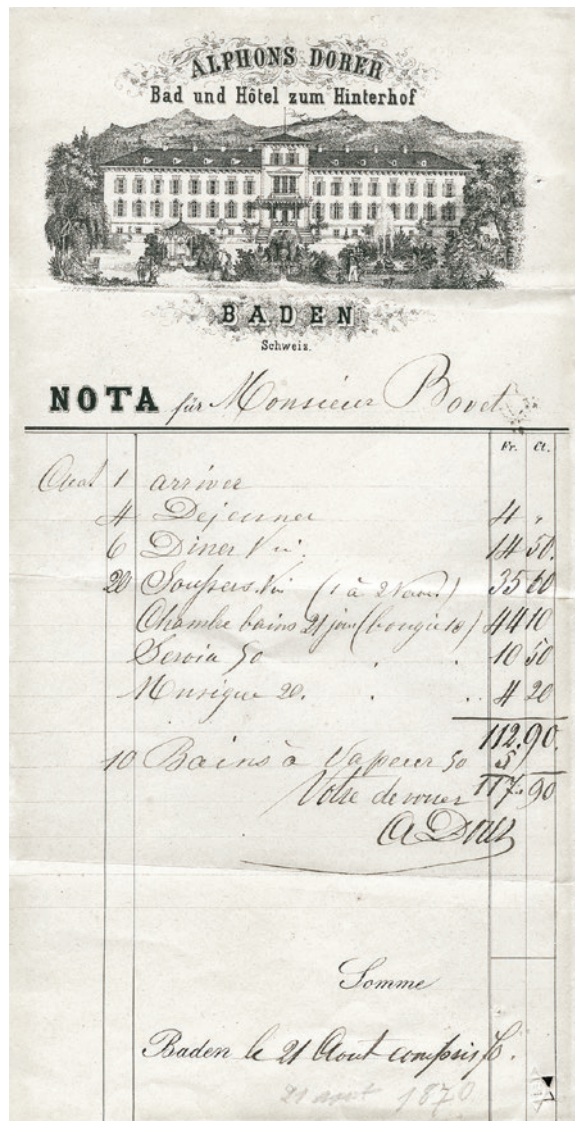 ALPHONS DORER
Bad und Hôtel zum Hinterhof
BADEN
Schweiz.
NOTA für Monsieur Bovet
Fr. Ct.
Aout 1 arrivée
4 Dejeuner 4 "
6 Diner Vin 14 50.
20 Soupers Vin (1 à 2 francs) 35 60
Chambre bains 21 jour (bougie 10) 44 10
Servia 50 . . 10 50
Musique 20. . .. 4 20
112.90.
10 Bains à Vapeur 50 5
Votre devouer 117.90
A Dorer
Somme
Baden le 21 Aout compris
21 aout 1870